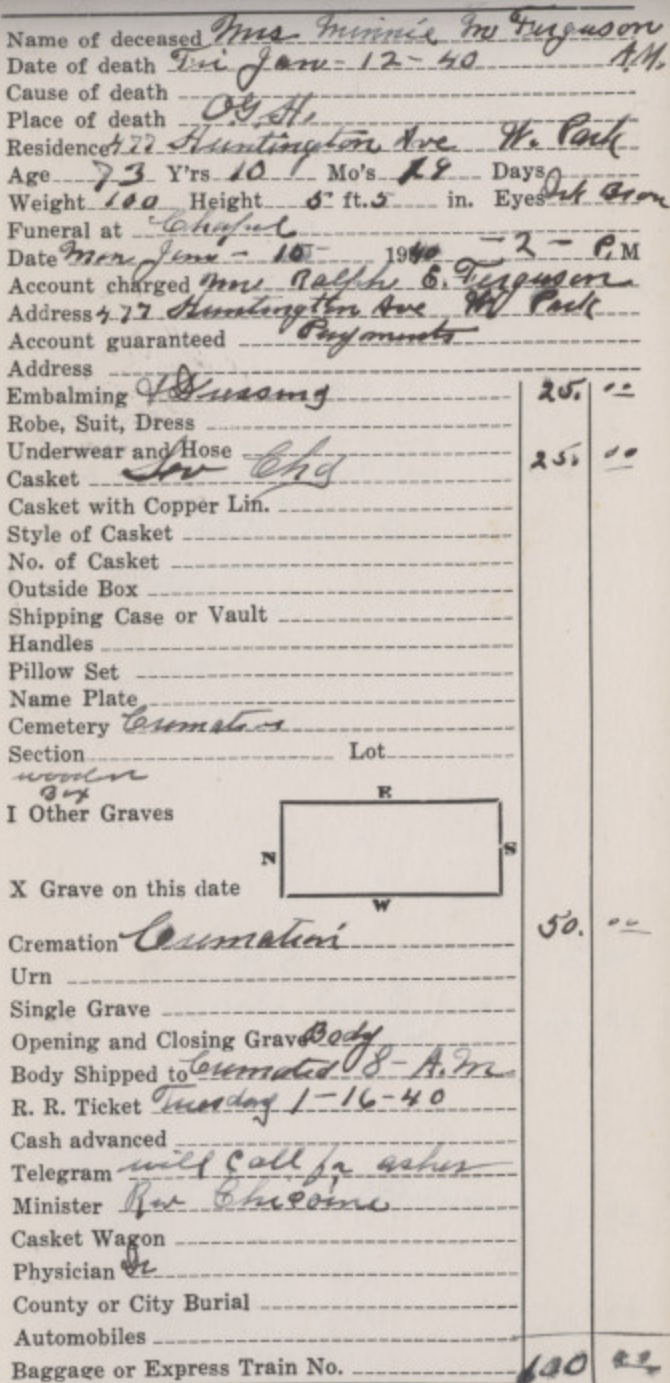 Name of deceased Mrs Minnie M Ferguson
Date of death Fri Jan - 12 - 40 A.M.
Cause of death
Place of death O.G.H.
Residence 477 Huntington Ave W. Park
Age 73 Y'rs 10 Mo's 29 Days
Weight 100 Height 5 ft. 5 in. Eyes Drk Brow
Funeral at Chapel
Date Mon Jan - 15 1940 - 2 - P.M
Account charged Mr Ralph E. Ferguson
Address 477 Huntington Ave W Park
Account guaranteed Payments
Address
Embalming & Dressing 25. 00
Robe, Suit, Dress
Underwear and Hose
Casket Ser Chg 25. 00
Casket with Copper Lin.
Style of Casket
No. of Casket
Outside Box
Shipping Case or Vault
Handles
Pillow Set
Name Plate
Cemetery Cremation
Section Lot
wooden
Box
I Other Graves
E
N S
X Grave on this date
W
Cremation Cremation 50. 00
Urn
Single Grave
Opening and Closing Grave Body
Body Shipped to Cremated 8 - A.M
R. R. Ticket Tuesday 1-16-40
Cash advanced
Telegram will Call for ashes
Minister Rev Chicoine
Casket Wagon
Physician Dr
County or City Burial
Automobiles
Baggage or Express Train No. 100 00